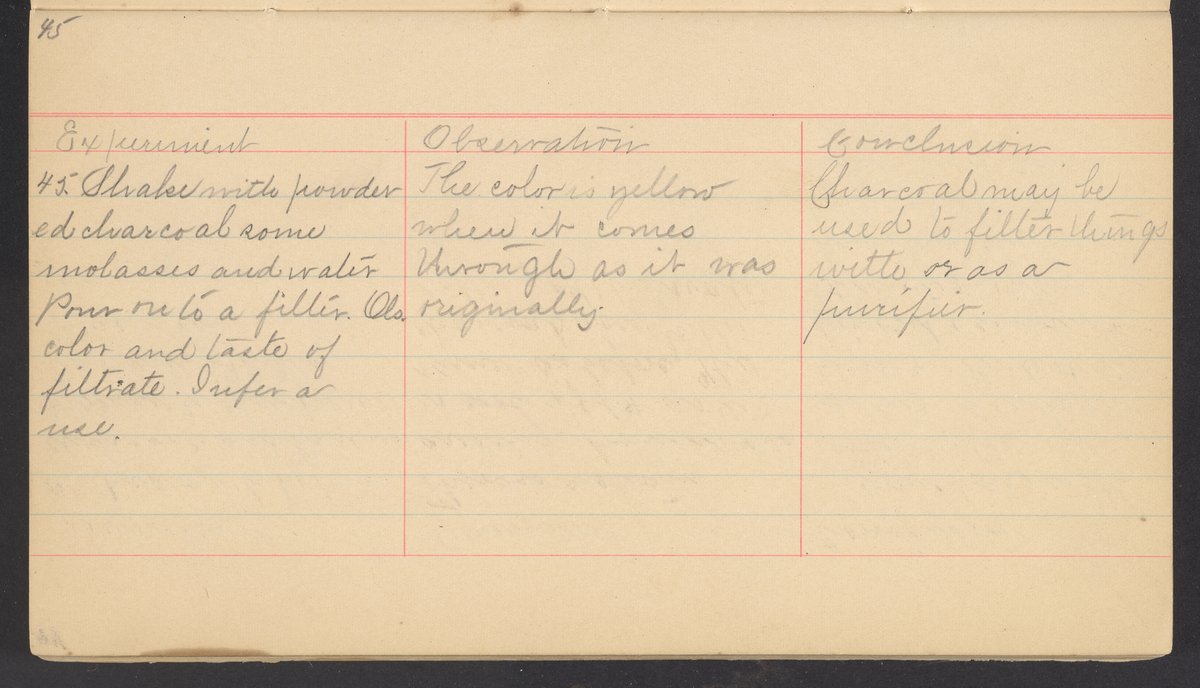 45
Experiment
45. Shake with powder
ed charcoal some
molasses and water
Pour on to a filter. Obs.
color and taste of
filtrate. Infer a
use.
Observation
The color is yellow
when it comes
through as it was
originally.
Conclusion
Charcoal may be
used to filter things
with or as a
purifier.